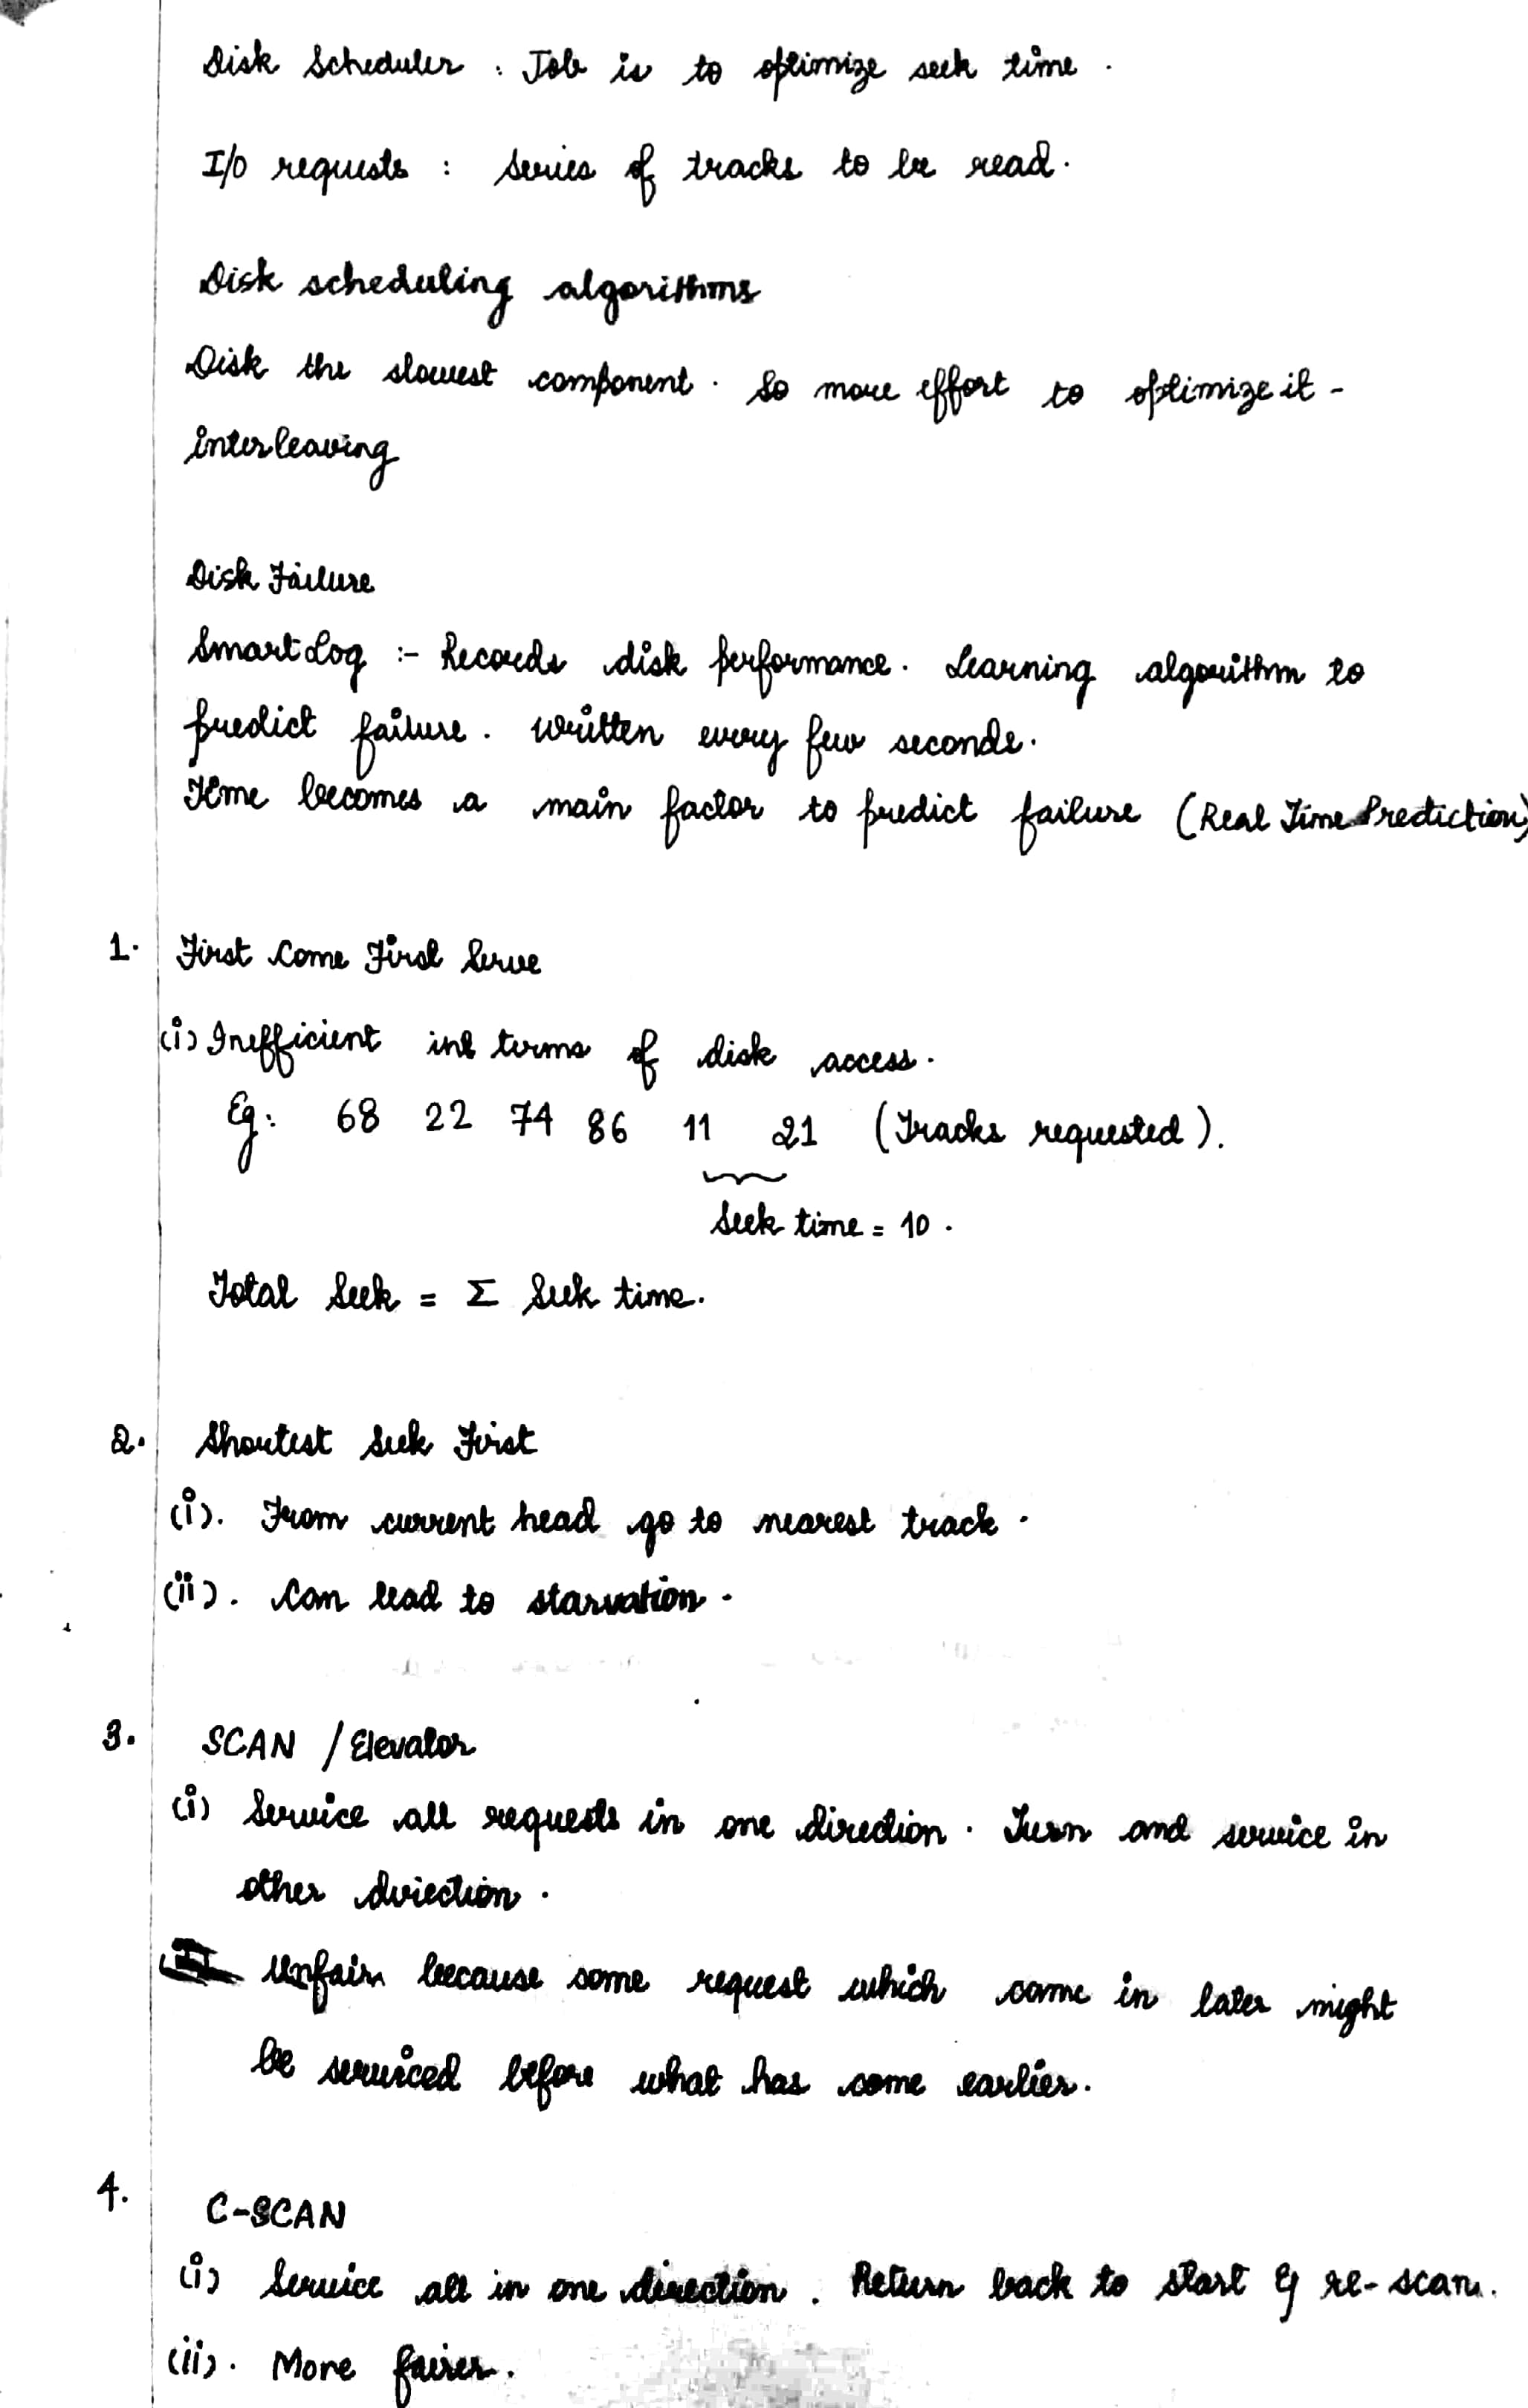 Disk Scheduler : Job is to optimize seek time .
I/O requests : Series of tracks to be read.
Disk scheduling algorithms
Disk the slowest component . So more effort to optimize it -
interleaving
Disk Failure
Smart Log :- Records disk performance. Learning algorithm to
predict failure . Written every few seconds.
Time becomes a main factor to predict failure (Real Time Prediction)
1. First Come First Serve
(i) Inefficient in terms of disk access.
Eg: 68 22 74 86 11 21 (Tracks requested).
Seek time = 10 .
Total Seek = Σ Seek time.
2. Shortest Seek First
(i). From current head go to nearest track .
(ii). Can lead to starvation .
3. SCAN / Elevator
(i) Service all requests in one direction . Turn and service in
other direction .
Unfair because some request which came in later might
be serviced before what has come earlier.
4. C-SCAN
(i) Service all in one direction . Return back to start & re-scan.
(ii). More fairer.